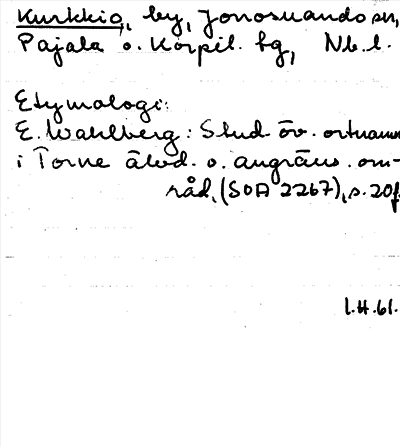 Kurkkio, by, Jonosuando sn,
Pajala o. Korpil. tg, Nb. l.
Etymologi:
E. Wahlberg: Stud. öv. ortnamn
i Torne älvd. o. angräns. om-
råd. (SOA 2267), s. 20f
I.H. 61.